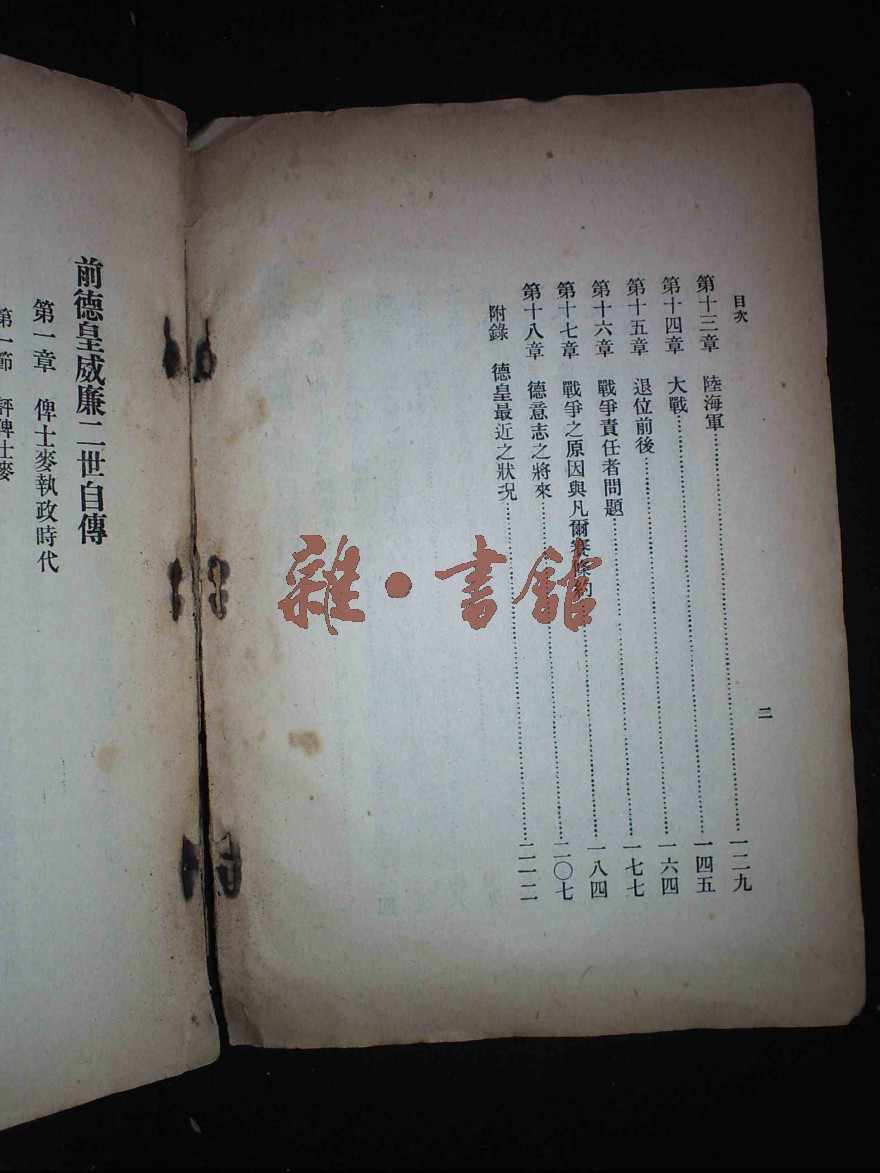 目次
二
第十三章 陸海軍……一二九
第十四章 大戰……一四五
第十五章 退位前後……一六四
第十六章 戰爭責任者問題……一七七
第十七章 戰爭之原因與凡爾賽條約……一八四
第十八章 德意志之將來……二〇七
附錄 德皇最近之狀況……二一二
前德皇威廉二世自傳
第一章 俾士麥執政時代
第一節 評俾士麥
雜·書館